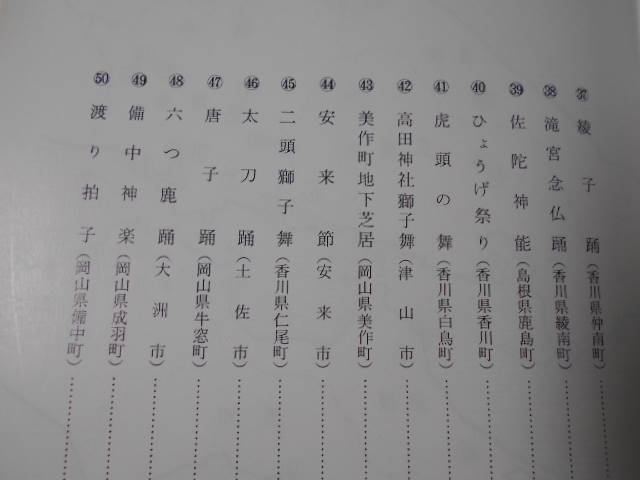 ㊲ 綾子踊(香川県仲南町)………
㊳ 滝宮念仏踊(香川県綾南町)………
㊴ 佐陀神能(島根県鹿島町)………
㊵ ひょうげ祭り(香川県香川町)………
㊶ 虎頭の舞(香川県白鳥町)………
㊷ 高田神社獅子舞(津山市)………
㊸ 美作町地下芝居(岡山県美作町)………
㊹ 安来節(安来市)………
㊺ 二頭獅子舞(香川県仁尾町)………
㊻ 太刀踊(土佐市)………
㊼ 唐子踊(岡山県牛窓町)………
㊽ 六つ鹿踊(大洲市)………
㊾ 備中神楽(岡山県成羽町)………
㊿ 渡り拍子(岡山県備中町)………